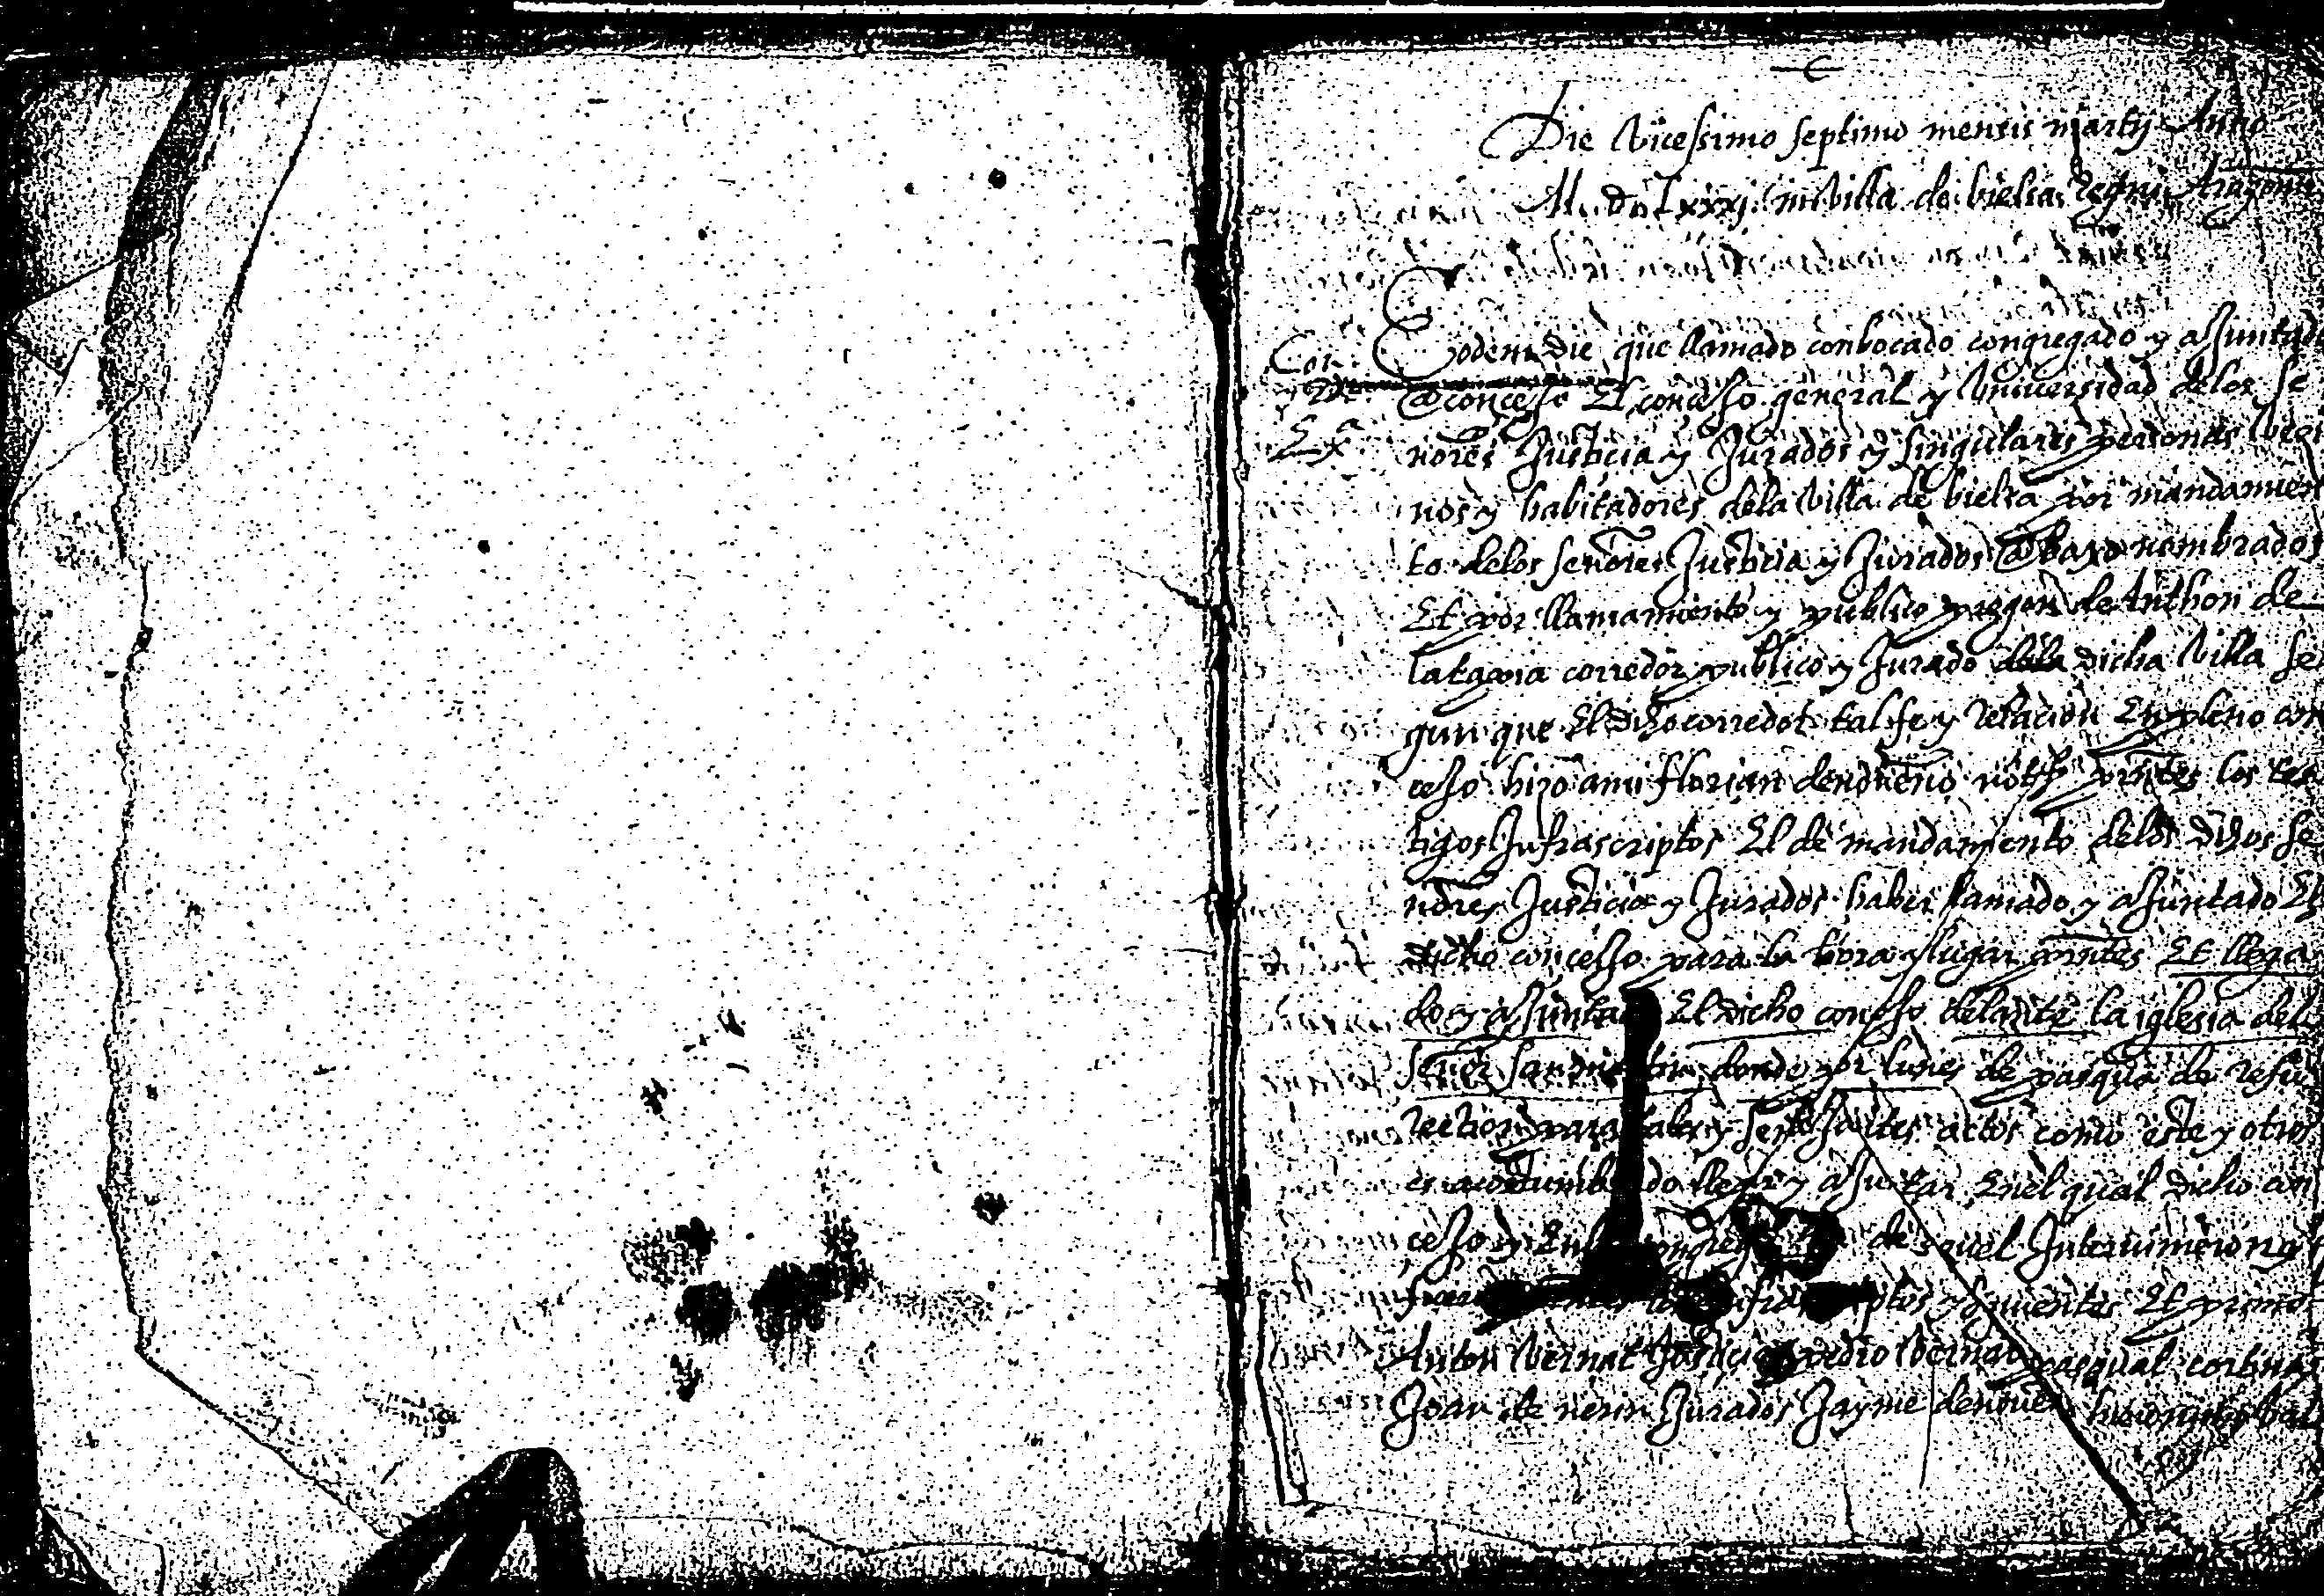 Die vicessimo septimo mensis martij Anno
M. d. Lxxxj. in villa de bielsa Regni Aragonu
Eodem die que llamado conbocado congregado y assuntado
Con
a concello El concello general y Universidad delos se
ñores Justicia y Jurados y singulares personas vezi
nos y habitadores dela villa de bielsa por mandamien
to delos señores Justicia y Jurados abaxo nombrados
Et por llamamiento y publico pregon de Anthon de
corredor publico y Jurado dela dicha villa se
gun que El dicho corredor tal fe y relacion En pleno con
cello hizo a mi florian not presentes los tes
tigos Infrascriptos El de mandamiento delos dichos se
ñores Justicia y Jurados haber llamado y assuntado El
dicho concello para la hora y lugar presentes Et llega
do y assuntado El dicho concello delante la iglesia del
señor donde por lunes de pasqua de resu
rection para tales y semejantes actos como este y otros
es acostumbrado llegar y assuntar Enel qual dicho con
cello y de aquel Intervinieron
y siguientes Et primo
Anton Vernat Justicia pedro Vernat pasqual cortina
Joan de nerin Jurados Jayme